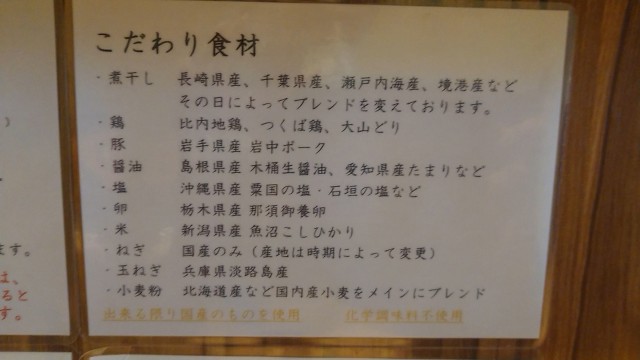 こだわり食材
・煮干し 長崎県産、千葉県産、瀬戸内海産、境港産など
その日によってブレンドを変えております。
・鶏 比内地鶏、つくば鶏、大山どり
・豚 岩手県産 岩中ポーク
・醤油 島根県産 木桶生醤油、愛知県産たまりなど
・塩 沖縄県産 粟国の塩・石垣の塩など
・卵 栃木県産 那須御養卵
・米 新潟県産 魚沼こしひかり
・ねぎ 国産のみ（産地は時期によって変更）
・玉ねぎ 兵庫県淡路島産
・小麦粉 北海道産など国内産小麦をメインにブレンド
出来る限り国産のものを使用 化学調味料不使用
ます。
は、
ると
す。